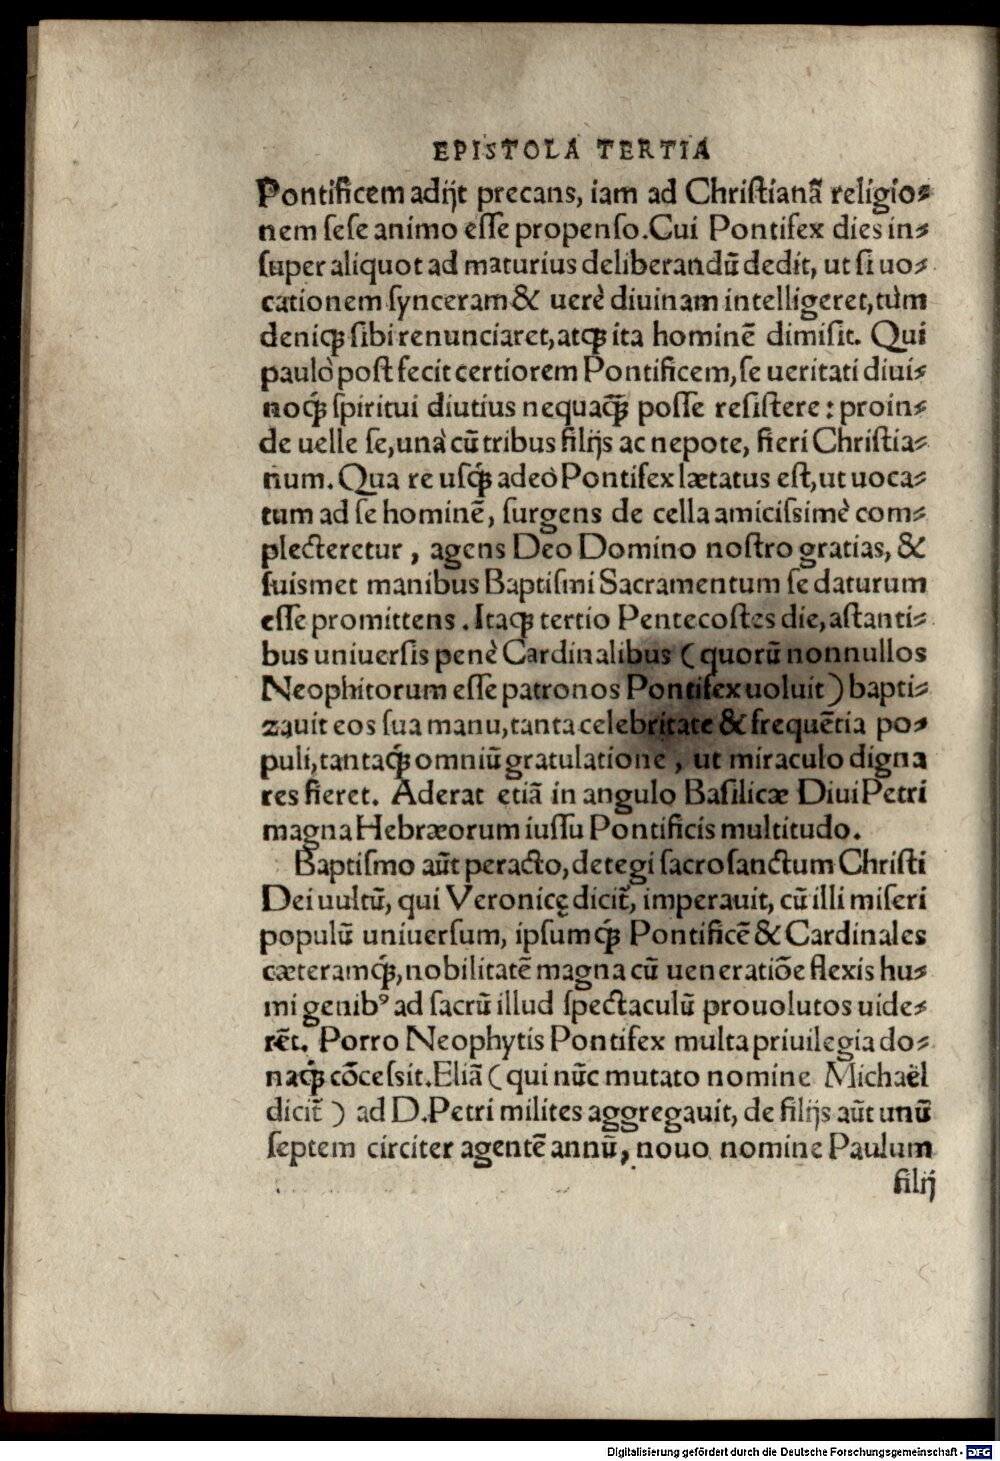 EPISTOLA TERTIA
Pontificem adijt precans, iam ad Christianā religio-
nem sese animo esse propenso. Cui Pontifex dies in-
super aliquot ad maturius deliberandū dedit, ut si uo-
cationem synceram & uerè diuinam intelligeret, tùm
deniqꝫ sibi renunciaret, atqꝫ ita hominē dimisit. Qui
paulò post fecit certiorem Pontificem, se ueritati diui-
noqꝫ́ spiritui diutius nequaqꝫ̄ posse resistere: proin-
de uelle se, unà cū tribus filijs ac nepote, fieri Christia-
num. Qua re usqꝫ́ adeò Pontifex lætatus est, ut uoca-
tum ad se hominē, surgens de cella amicissimè com-
plecteretur, agens Deo Domino nostro gratias, &
suismet manibus Baptismi Sacramentum se daturum
esse promittens. Itaqꝫ tertio Pentecostes die, astanti-
bus uniuersis penè Cardinalibus (quorū nonnullos
Neophitorum esse patronos Pontifex uoluit) bapti-
zauit eos sua manu, tanta celebritate & frequētia po-
puli, tantaqꝫ́ omniū gratulatione, ut miraculo digna
res fieret. Aderat etiā in angulo Basilicæ Diui Petri
magna Hebræorum iussu Pontificis multitudo.
Baptismo aūt peracto, detegi sacrosanctum Christi
Dei uultū, qui Veronicę dicit̄, imperauit, cū illi miseri
populū uniuersum, ipsumqꝫ́ Pontificē & Cardinales
cæteramqꝫ́, nobilitatē magna cū ueneratiōe flexis hu-
mi genibꝰ ad sacrū illud spectaculū prouolutos uide-
rēt. Porro Neophytis Pontifex multa priuilegia do-
naqꝫ́ cōcessit. Eliā (qui nūc mutato nomine Michaël
dicit̄) ad D. Petri milites aggregauit, de filijs aūt unū
septem circiter agentē annū, nouo nomine Paulum
filij
Digitalisierung gefördert durch die Deutsche Forschungsgemeinschaft - DFG